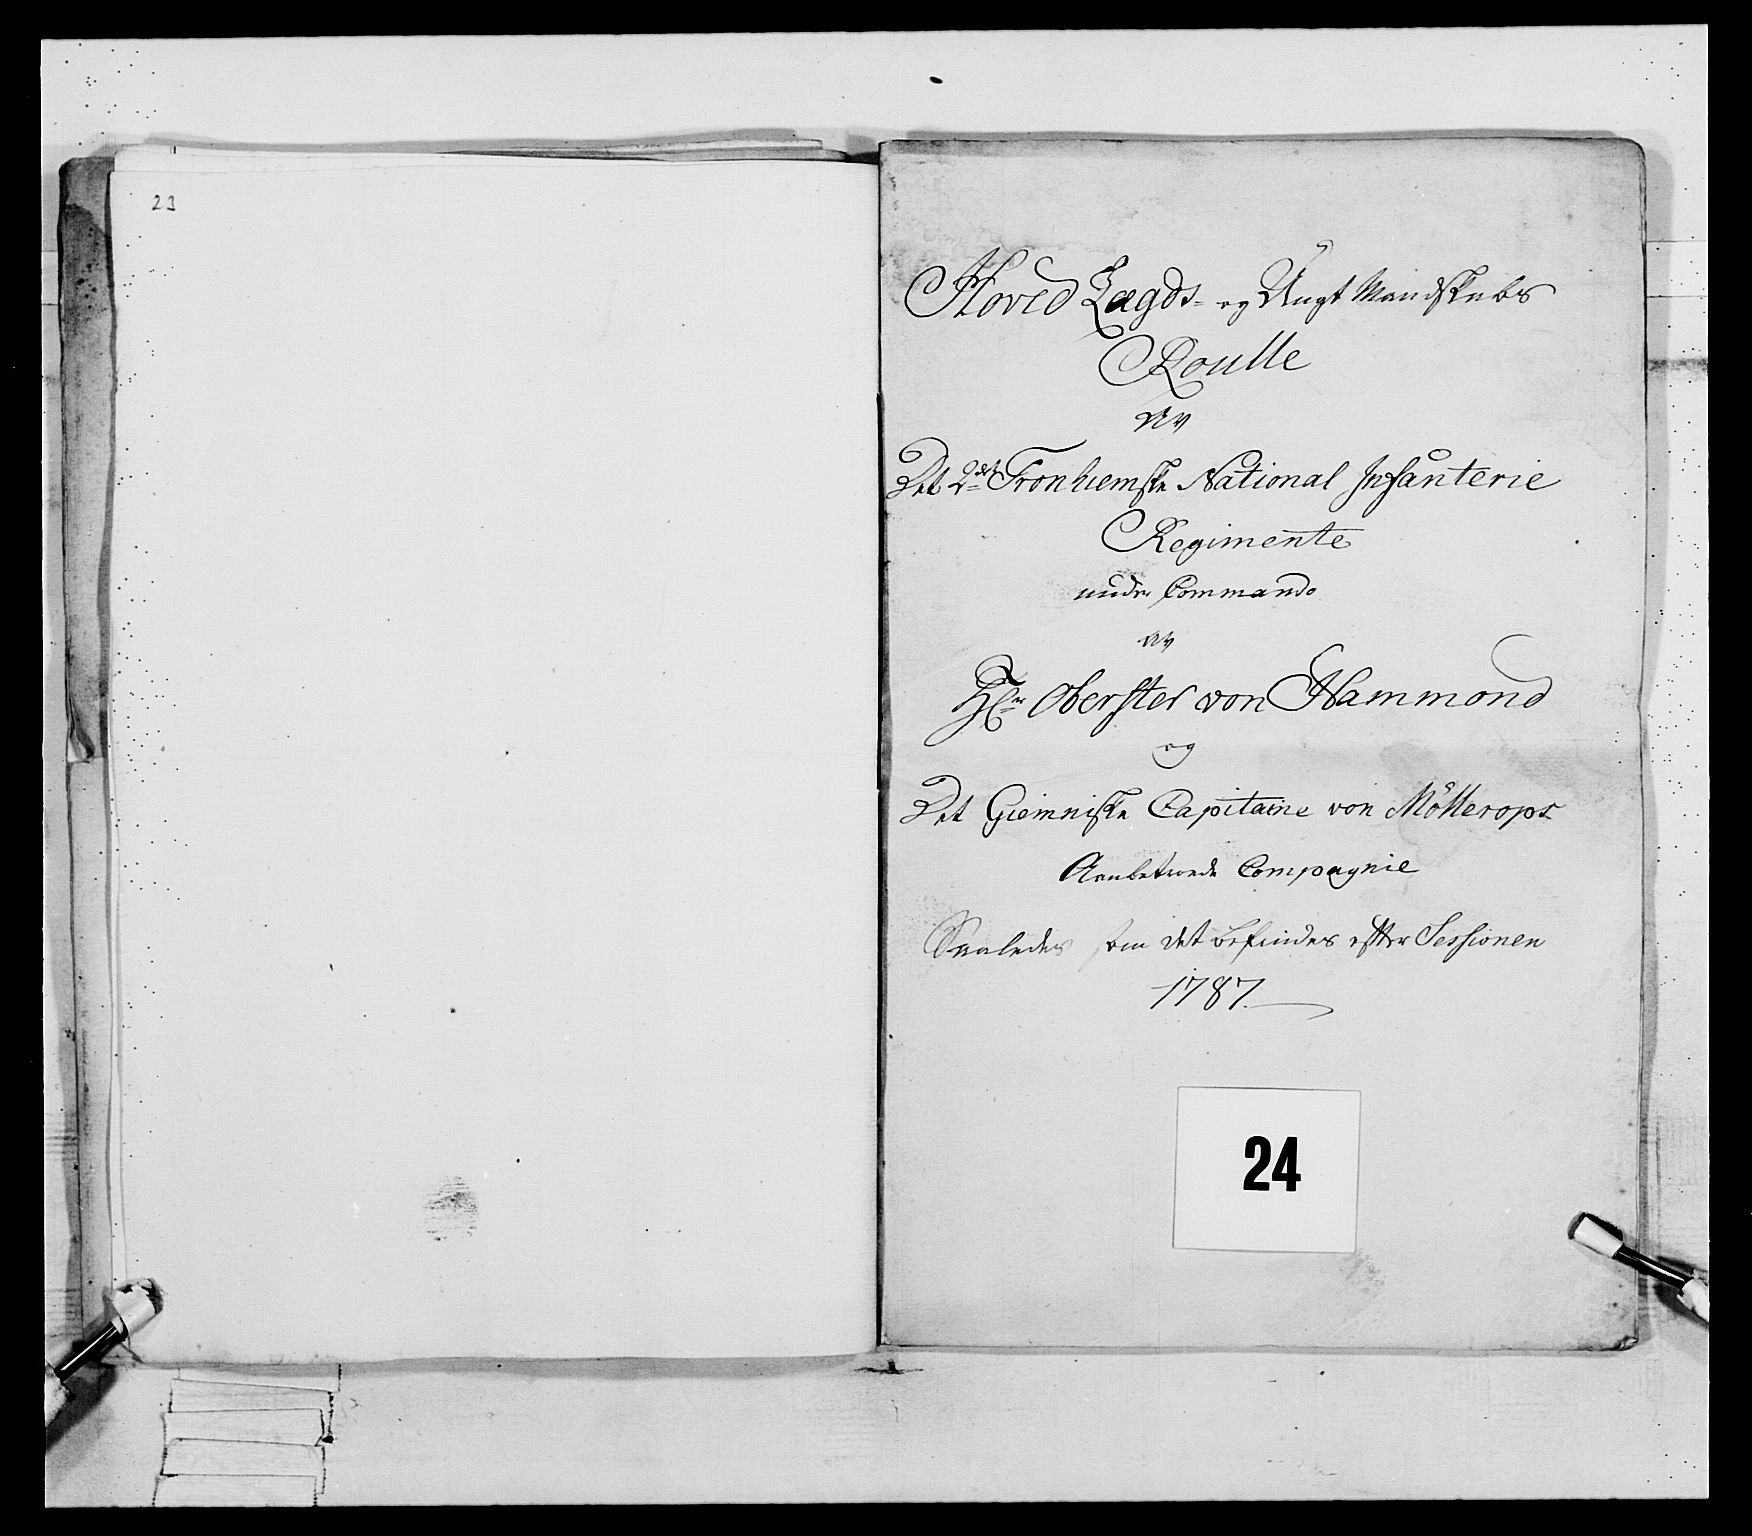 23
Hoved Lægds- og Ungt Mandskabs
Roulle
Av
Det 2det Tronhiemske National Infanterie
Regimente
under Commando
av
Hr Oberster von Hammond
og
Det Giemniske Capitaine von Möllerops
Anbetroede Compagnie
Saaledes som det befindes efter Sessionen
1787
24